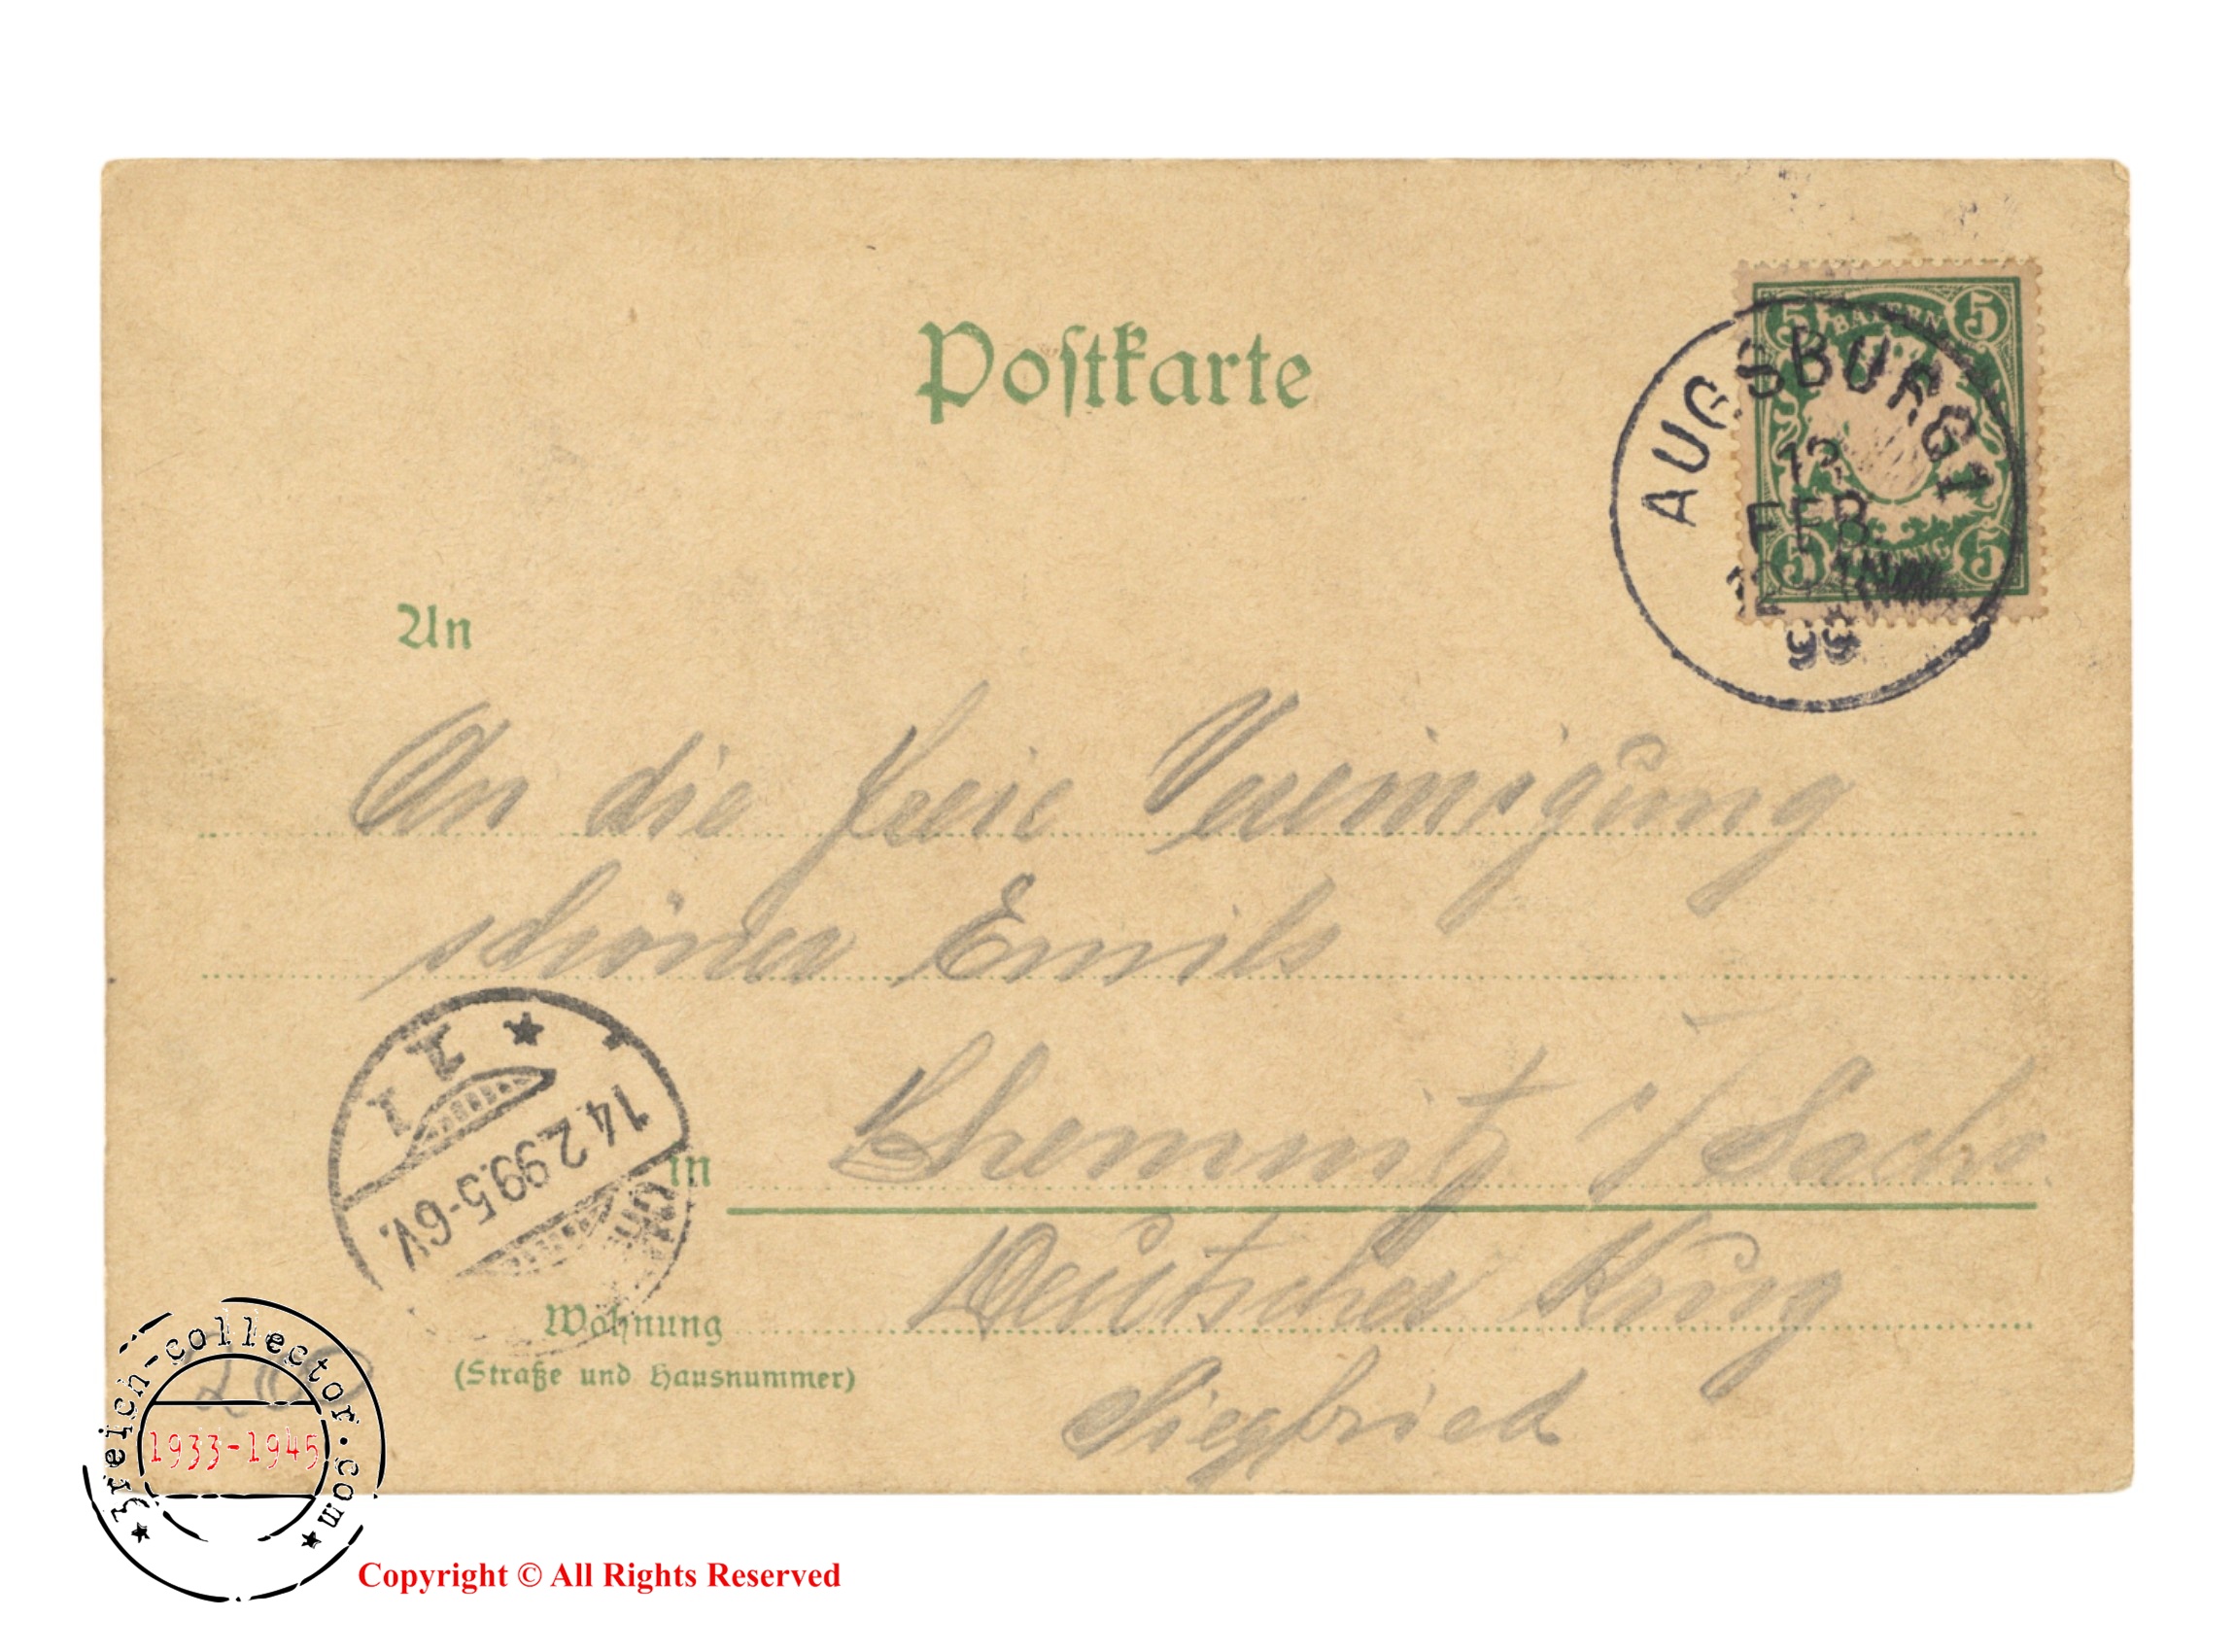 Postkarte
BAYERN
5 5
5 PFENNIG 5
AUGSBURG 1
12
FEB.
99
An
An die freie Vereinigung
schöner Emils
14.2.99.5-6V.
in Chemnitz i/Sachs.
Wohnung Deutscher Krug
(Straße und Hausnummer)
Siegfried
200
3reich-collector.com
1933-1945
Copyright © All Rights Reserved